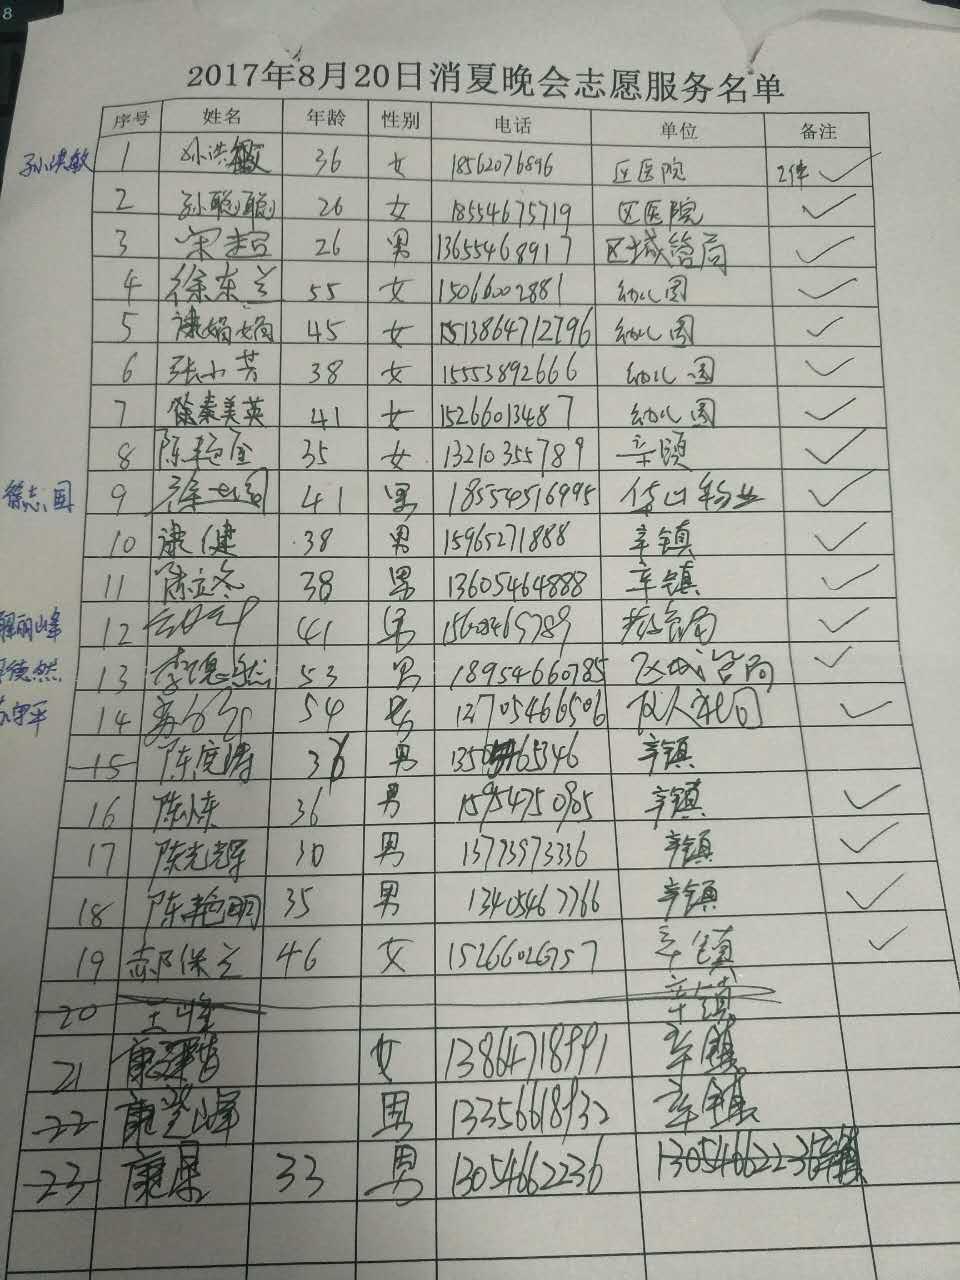 2017年8月20日消夏晚会志愿服务名单
序号 姓名 年龄 性别 电话 单位 备注
孙洪敏 1 孙洪敏 36 女 18562076896 区医院 2件 ✓
2 孙聪聪 26 女 18554675719 区医院 ✓
3 宋超 26 男 13655468917 区城管局 ✓
4 徐东兰 55 女 15066002881 幼儿园 ✓
5 康娟娟 45 女 13864712796 幼儿园 ✓
6 张小芳 38 女 15553892666 幼儿园 ✓
7 秦美英 41 女 15266013487 幼儿园 ✓
8 陈艳 35 女 13210355789 辛颐 ✓
徐志国 9 徐志国 41 男 18554516995 物业 ✓
10 康健 38 男 15965271888 辛镇 ✓
11 陈立冬 38 男 13605464888 辛镇 ✓
丽峰 12 41 男 ✓
德然 13 李德然 53 男 18954660785 区城管局 ✓
守平 14 54 12705466506 ✓
15 陈 男 辛镇
16 陈 36 男 15954750985 辛镇 ✓
17 陈光辉 30 男 13793973336 辛镇 ✓
18 陈艳明 35 男 13405467766 辛镇 ✓
19 郝保兰 46 女 15266026757 辛镇 ✓
20 王峰 辛镇
21 康 女 13864718991 辛镇
22 康登峰 男 13356618932 辛镇
23 康 33 男 13054662236 13054662236 辛镇